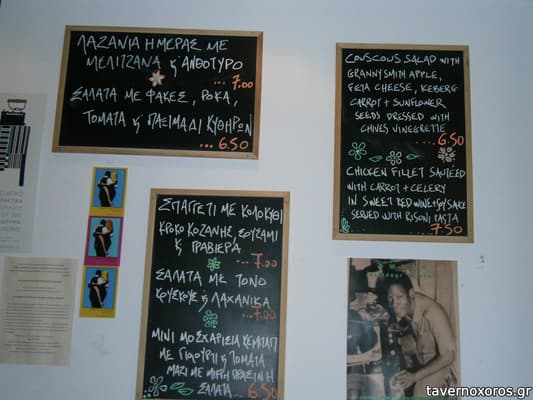 ΛΑΖΑΝΙΑ ΗΜΕΡΑΣ ΜΕ
ΜΕΛΙΤΖΑΝΑ & ΑΝΘΟΤΥΡΟ
... 7.00
ΣΑΛΑΤΑ ΜΕ ΦΑΚΕΣ, ΡΟΚΑ,
ΤΟΜΑΤΑ & ΠΑΞΙΜΑΔΙ ΚΥΘΗΡΩΝ
... 6.50
COUSCOUS SALAD WITH
GRANNYSMITH APPLE,
FETA CHEESE, ICEBERG
CARROT + SUNFLOWER
SEEDS DRESSED WITH
CHIVES VINEGRETTE
... 6.50
CHICKEN FILLET SAUTEED
WITH CARROT + CELERY
IN SWEET RED WINE + SOYSAUCE
SERVED WITH RISONI PASTA
... 7.50
ΣΠΑΓΓΕΤΙ ΜΕ ΚΟΛΟΚΥΘΙ
ΚΡΟΚΟ ΚΟΖΑΝΗΣ, ΣΟΥΣΑΜΙ
& ΓΡΑΒΙΕΡΑ
... 7.00
ΣΑΛΑΤΑ ΜΕ ΤΟΝΟ
ΚΟΥΣΚΟΥΣ & ΛΑΧΑΝΙΚΑ
... 7.00
ΜΙΝΙ ΜΟΣΧΑΡΙΣΙΑ ΚΕΜΠΑΠ
ΜΕ ΓΙΑΟΥΡΤΙ & ΤΟΜΑΤΑ
ΜΑΖΙ ΜΕ ΜΙΚΡΗ ΠΡΑΣΙΝΗ
ΣΑΛΑΤΑ ... 6.50
tavernoxoros.gr